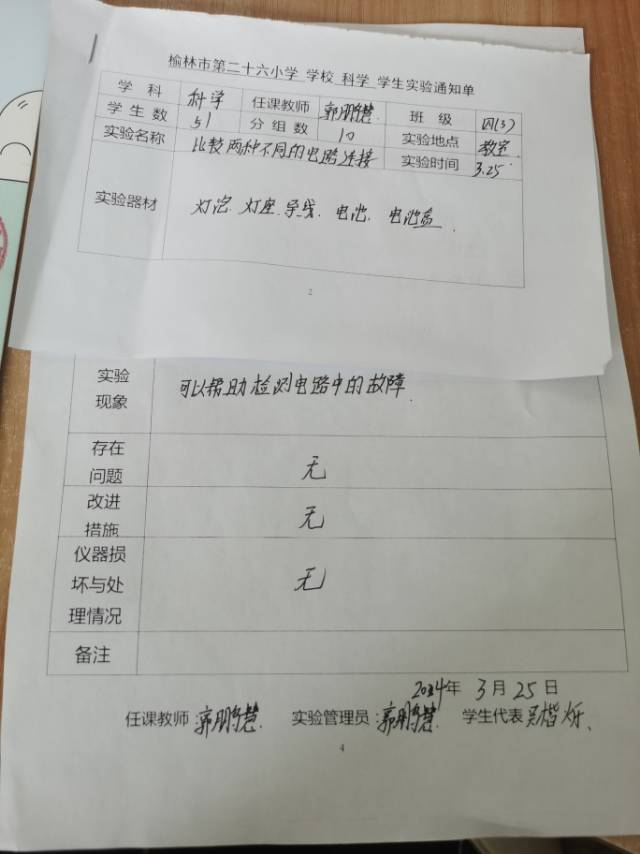 榆林市第二十六小学 学校 科学 学生实验通知单
学科 科学 任课教师 郭鹏慧 班级 四(3)
学生数 51 分组数 10 实验地点 教室
实验名称 比较两种不同的电路连接 实验时间 3.25
实验器材 灯泡. 灯座. 导线. 电池. 电池盒.
2
实验
现象 可以帮助检测电路中的故障.
存在
问题 无
改进
措施 无
仪器损
坏与处 无
理情况
备注
2024年 3月25日
任课教师:郭鹏慧. 实验管理员:郭鹏慧. 学生代表
4